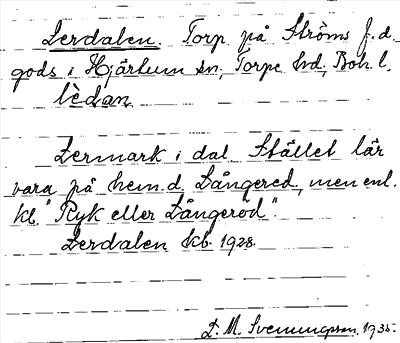 Lerdalen. Torp på Ströms f.d.
gods i Hjärtum sn, Torpe hd, Boh.l.
lèdan
Lermark i dal. Stället lär
vara på hem.d Långered, men enl.
kb. "Ryk eller Långeröd".
Lerdalen kb. 1928.
D. M. Svenungsson. 1935.